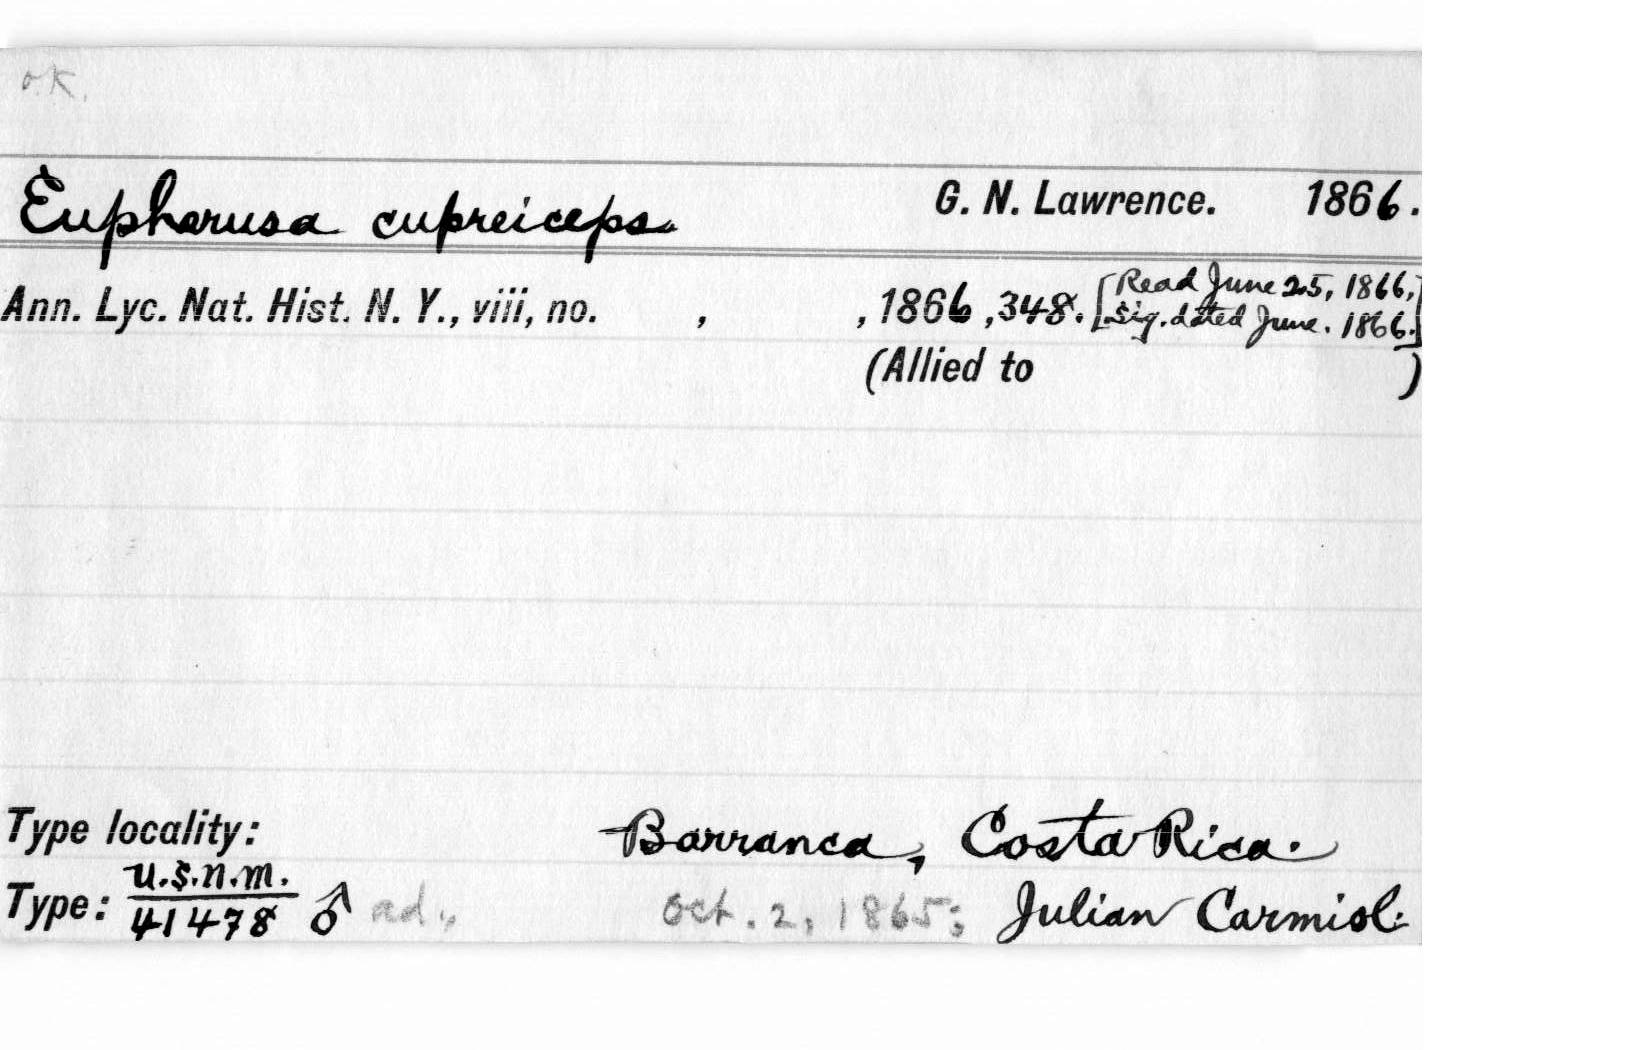 o.K.
Eupherusa cupreiceps. G. N. Lawrence. 1866.
Ann. Lyc. Nat. Hist. N. Y., viii, no. , , 1866, 348. [Read June 25, 1866,
sig. dated June. 1866.]
(Allied to )
Type locality: Barranca, Costa Rica.
Type: U.S.N.M. 41478 ♂ ad., Oct. 2, 1865; Julian Carmiol.